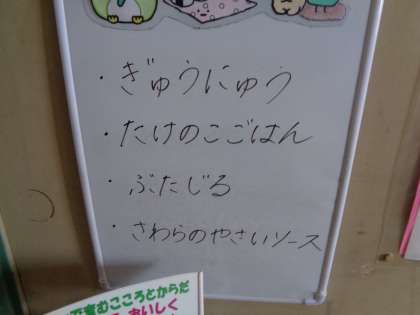 ・ぎゅうにゅう
・たけのこごはん
・ぶたじる
・さわらのやさいソース
育むこころとからだ
おいしく